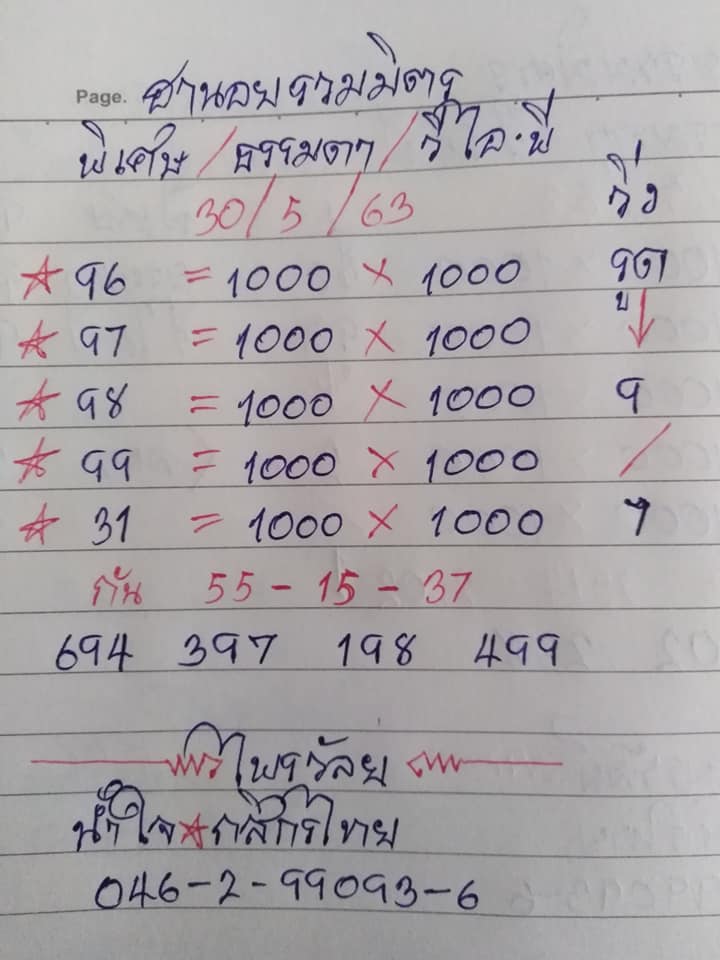 Page. ฮานอยรวมมิตร
พิเศษ / ธรรมดา / วีไอ.พี
30/5/63
วิ่ง
รูด
☆ 96 = 1000 × 1000
☆ 97 = 1000 × 1000
☆ 98 = 1000 × 1000 9
☆ 99 = 1000 × 1000 /
☆ 31 = 1000 × 1000 7
กัน 55 - 15 - 37
694 397 198 499
ไพรวัลย์
น้ำใจ ☆ กสิกรไทย
046-2-99093-6